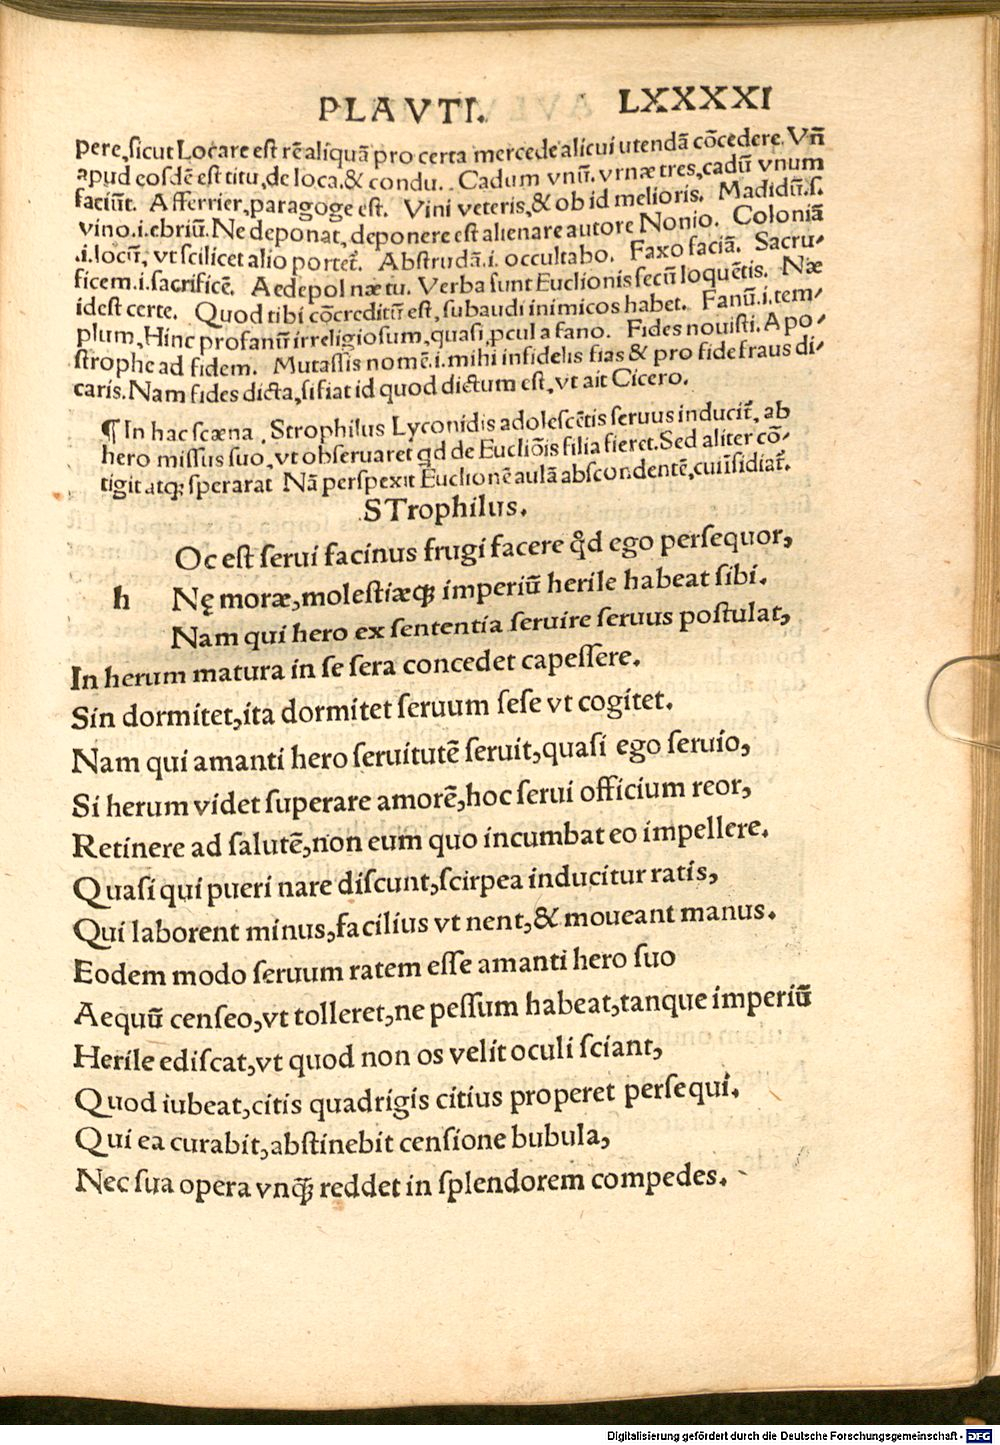 PLAVTI. LXXXXI
pere,ſicut Locare eſt rē aliquā pro certa mercede alicui utendā cōcedere. Vñ
apud eoſdē eſt titu, de loca.& condu.. Cadum vnū. vrnæ tres, cadū vnum
faciūt. Afferrier, paragoge eſt. Vini veteris, & ob id melioris. Madidū.ſ.
vino.i.ebriū. Ne deponat, deponere eſt alienare autore Nonio. Coloniā
.i.locū, vt ſcilicet alio portet̄. Abſtrudā.i. occultabo. Faxo faciā. Sacru-
ficem.i.ſacrificē. Aedepol næ tu. Verba ſunt Euclionis ſecū loquētis. Næ
ideſt certe. Quod tibi cōcreditū eſt, ſubaudi inimicos habet. Fanū.i.tem-
plum, Hinc profanū irreligioſum, quaſi ꝓcul a fano. Fides nouiſti. Apo-
ſtrophe ad fidem. Mutaſſis nomē.i.mihi infidelis fias & pro fide fraus di-
caris. Nam fides dicta, ſi fiat id quod dictum eſt, vt ait Cicero.
¶ In hac ſcæna . Strophilus Lyconidis adoleſcētis ſeruus inducit̄, ab
hero miſſus ſuo, vt obſeruaret qd de Eucliōis filia fieret. Sed aliter cō-
tigit atqꝫ ſperarat Nā perſpexit Euclionē aulā abſcondentē, cui īſidiat̄.
STrophilus.
Oc eſt ſerui facinus frugi facere qd̄ ego perſequor,
h Nę moræ, moleſtiæqꝫ imperiū herile habeat ſibi.
Nam qui hero ex ſententia ſeruire ſeruus poſtulat,
In herum matura in ſe ſera concedet capeſſere.
Sin dormitet, ita dormitet ſeruum ſeſe vt cogitet.
Nam qui amanti hero ſeruitutē ſeruit, quaſi ego ſeruio,
Si herum videt ſuperare amorē, hoc ſerui officium reor,
Retinere ad ſalutē, non eum quo incumbat eo impellere.
Quaſi qui pueri nare diſcunt, ſcirpea inducitur ratis,
Qui laborent minus, facilius vt nent, & moueant manus.
Eodem modo ſeruum ratem eſſe amanti hero ſuo
Aequū cenſeo, vt tolleret, ne peſſum habeat, tanque imperiū
Herile ediſcat, vt quod non os velit oculi ſciant,
Quod iubeat, citis quadrigis citius properet perſequi.
Qui ea curabit, abſtinebit cenſione bubula,
Nec ſua opera vnqꝫ reddet in ſplendorem compedes.
Digitalisierung gefördert durch die Deutsche Forschungsgemeinschaft - DFG